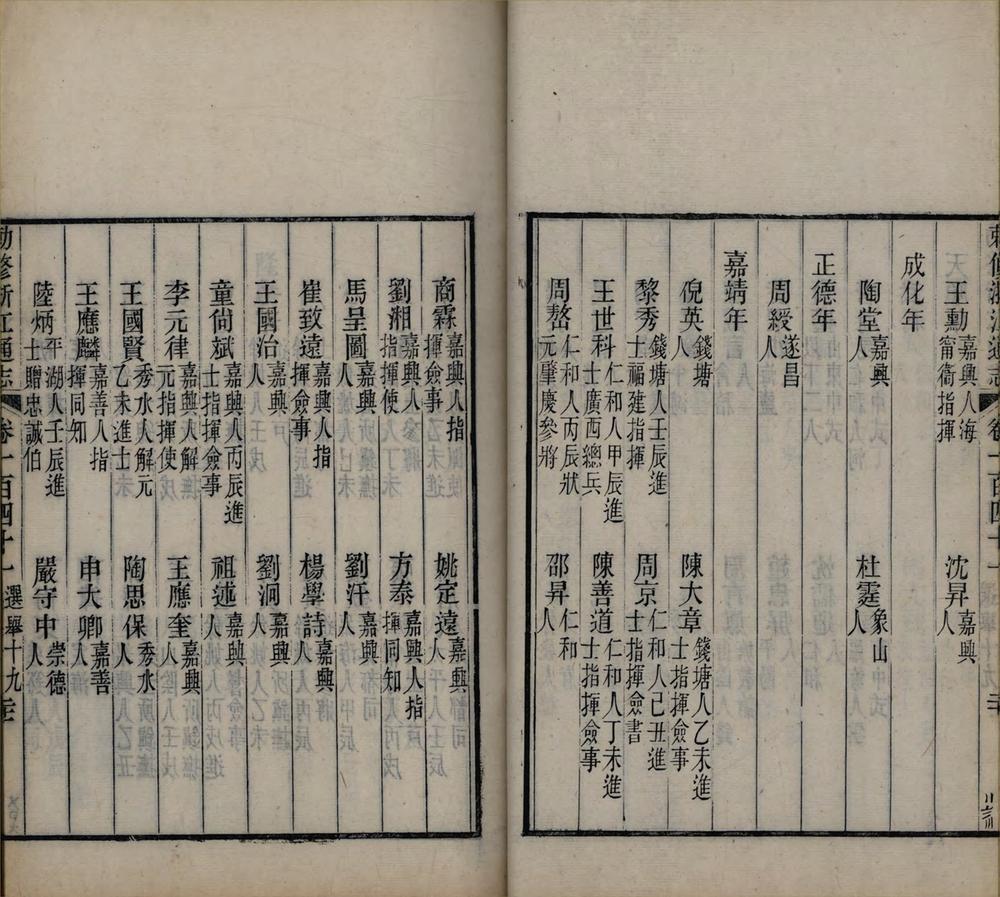 王勳嘉興人海甯衞指揮　沈昇嘉興人
成化年
陶堂嘉興人　杜霆象山人
正德年
周綬遂昌人
嘉靖年
倪英錢塘人　陳大章錢塘人乙未進士指揮僉事
黎秀錢塘人壬辰進士福建指揮　周京仁和人己丑進士指揮僉書
王世科仁和人甲辰進士廣西總兵　陳善道仁和人丁未進士指揮僉事
周嶅仁和人丙辰狀元肇慶參將　邵昇仁和人
商霖嘉興人指揮僉事　姚定遠嘉興人
劉湘嘉興人指揮使　方泰嘉興人指揮同知
馬呈圖嘉興人　劉汗嘉興人
崔致遠嘉興人指揮僉事　楊學詩嘉興人
王國治嘉興人　劉泂嘉興人
童尙斌嘉興人丙辰進士指揮僉事　祖述嘉興人
李元律嘉興人解元指揮使　王應奎嘉興人
王國賢秀水人解元乙未進士　陶思保秀水人
王應麟嘉善人指揮同知　申大卿嘉善人
陸炳平湖人壬辰進士贈忠誠伯　嚴守中崇德人
勅修浙江通志　卷一百四十一　選舉十九